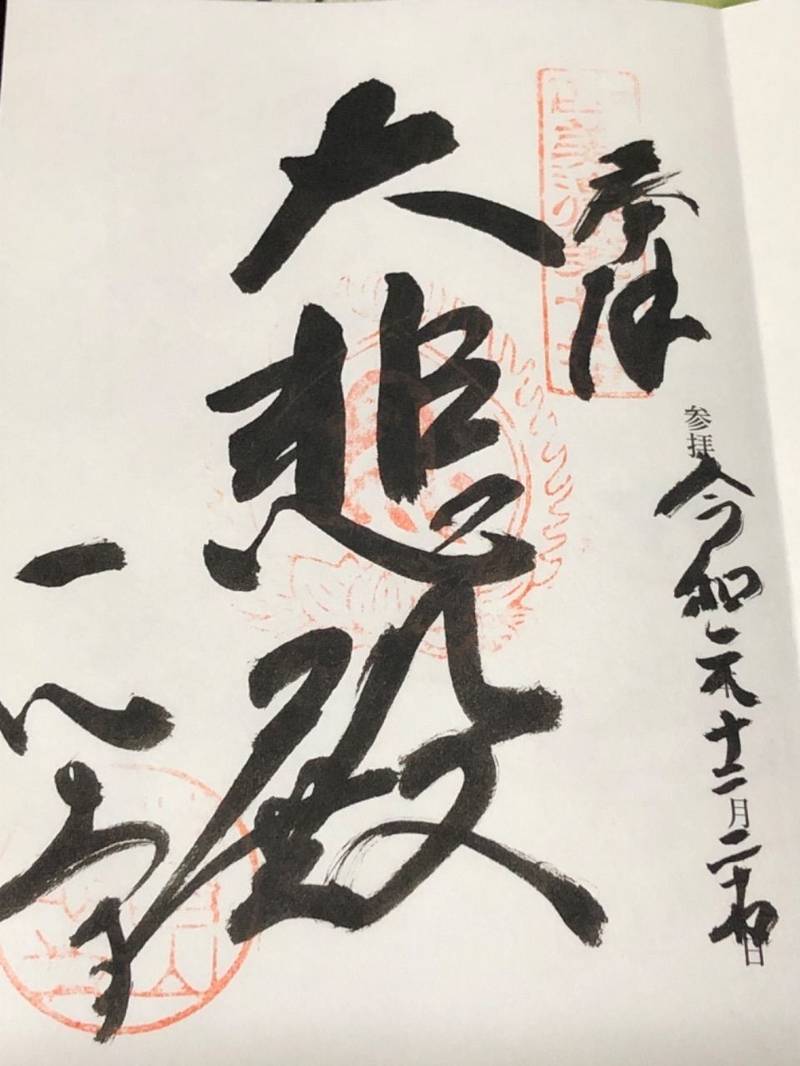 奉拝
参拝 令和元年十二月二十日
大悲殿
一心寺